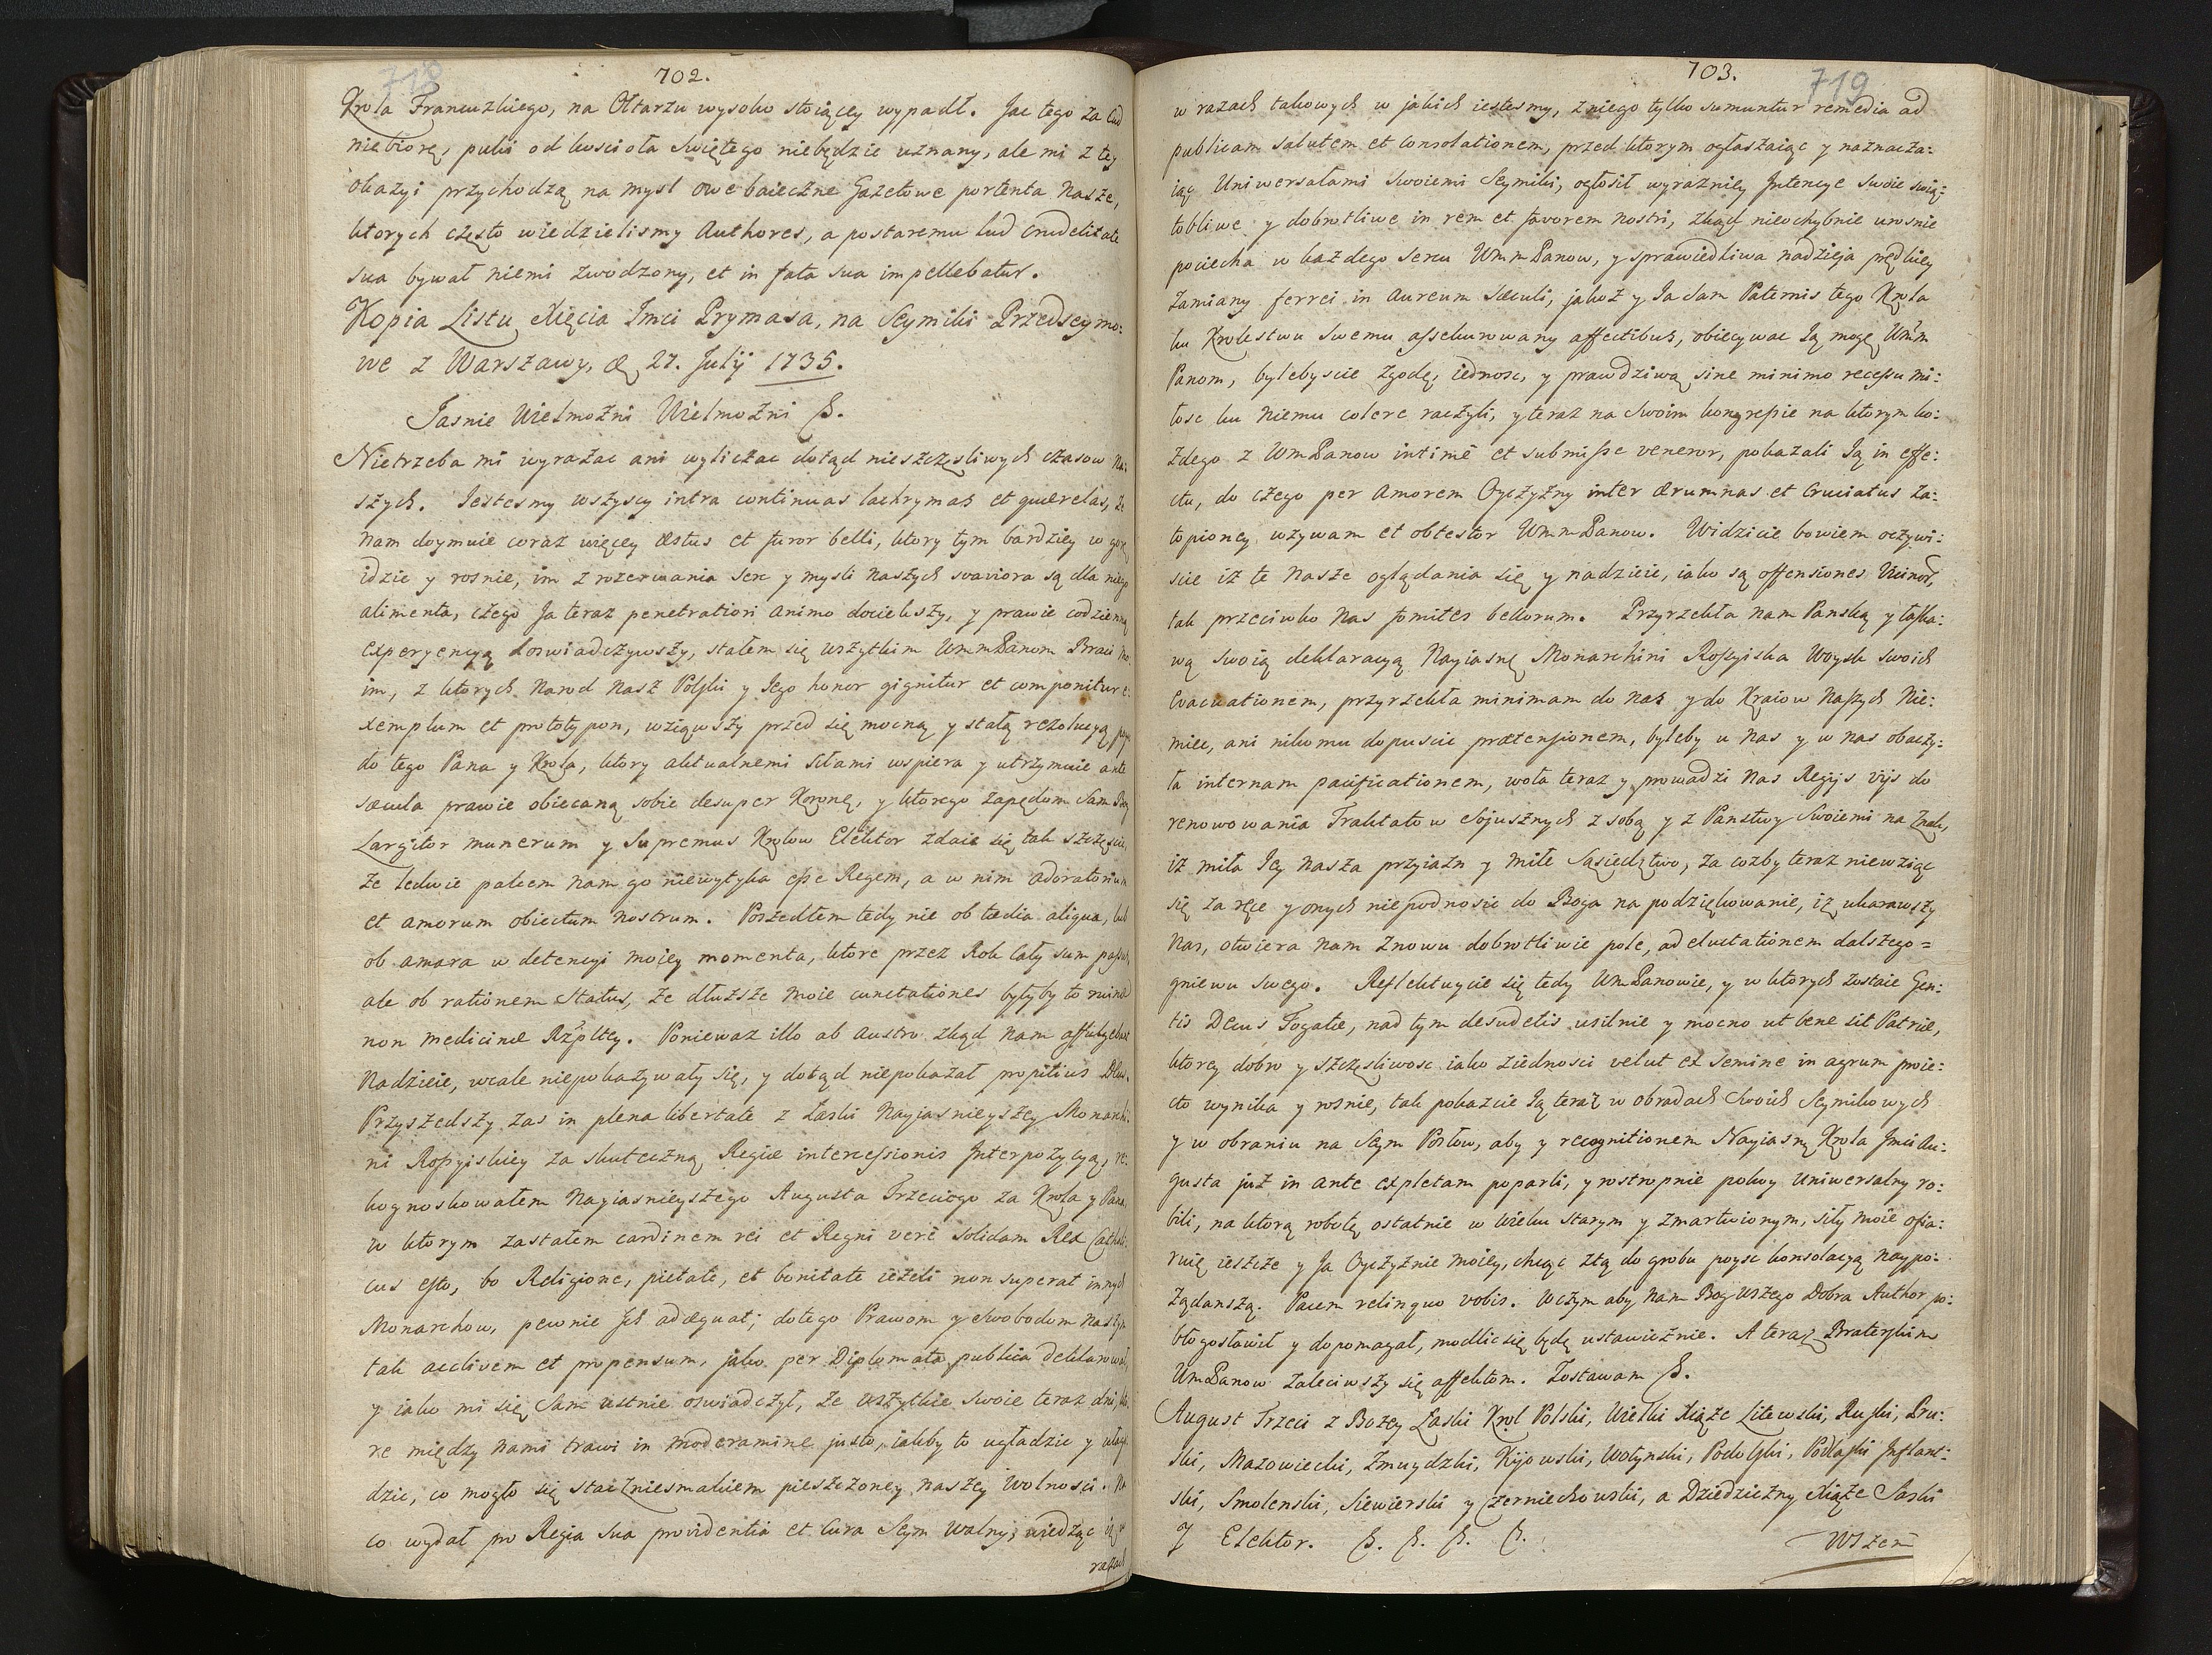 702.
718
Krola Francuzkiego, na Ołtarzu wysoko stoiący wypadł. Jac tego za Cud
niebiorę, puki od kosciola Swiętego niebędzie uznany, ale mi z tey
okazyi przychodzą na mysl owe baieczne Gazetowe portenta nasze,
ktorych często wiedzielismy Authores, a postaremu lud crudelitate
sua bywał niemi zwodzony, et in fata sua impellebatur.
Kopia Listu Xięcia Imci Prymasa, na Seymiki Przedseymo:
we z Warszawy, d. 27. Julÿ 1735.
Jasnie Wielmozni Wielmozni &.
Nietrzeba mi wyrazac ani wyliczac dotąd nieszczęsliwych czasow na:
szych. Jestesmy wszyscy intra continuas lachrymas et quærelas, że
nam doymuie coraz więcey æstus et furor belli, ktory tym bardziey w gorę
idzie y rosnie, im z rozerwania serc y mysli naszych suaviora są dla niego
alimenta, czego Ja teraz penetratiori animo dociekszy, y prawie codzienną
experyencyą doswiadczywszy, stałem się wszytkim WmmPanom Braci mo:
im, z ktorych Narod nasz Polski y Jego honor gignitur et componitur e:
xemplum et prototypon, wziąwszy przed się mocną y stałą rezolucyą
do tego Pana y Krola, ktory aktualnemi siłami wspiera y utrzymuie ante
sæcula prawie obiecaną sobie desuper Koronę, y ktorego zapędom Sam Bog
Largitor munerum y Supremus Krolow Elektor zdaie się tak szczęscic,
że ledwie palcem nam go niewytyka esse Regem, a w nim adoratorium
et amorum obiectum nostrum. Poszedłem tedy nie ob tædia aliqua, lub
ob amara w detencyi moiey momenta, ktore przez Rok cały sum passus,
ale ob rationem Status, że dłuzsze moie cunctationes byłyby to ruinæ
non medicinæ Rzpltey. Poniewaz illo ab Austro zkąd nam
Nadzieie, wcale niepokazywały się, y dotąd niepokazał propitius Deus.
Przyszedszy zas in plena libertate z Łaski Nayiasnieyszey Monarchi:
ni Rossyiskiey za skuteczną Regiæ intercessionis Interpozycyą, re:
kognoskowałem Nayiasnieyszego Augusta Trzeciego za Krola y Pana,
w ktorym zastałem cardinem rei et Regni verè solidam Rex Catholi:
cus esto, bo Religione, pietate, et bonitate ieżeli non superat innych
Monarchow, pewnie Ich adæquat; dotego Prawom y Swobodom naszym
tak acclivem et propensum, jako per Diplomata publica deklarował,
y iako mi się Sam ustnie oswiadczył, że wszytkie swoie teraz dni, kto:
re między nami trawi in moderamine justo, iakby to ugładzic y
dzic, co mogło się stac zniesmakiem pieszczoney naszey wolnosci. Na
co wydał pro Regia sua providentia et cura Seym walny, wiedząc iż w
razach
703.
719
w razach takowych w jakich iestesmy, zniego tylko sumuntur remedia ad
publicam salutem et consolationem, przed ktorym ogłaszaiąc y naznacza:
iąc Uniwersałami swoiemi Seymiki, ogłosił wyrazniey Intencye swoie swią:
tobliwe y dobrotliwe in rem et favorem nostri, zkąd nieochybnie urosnie
pociecha w kazdego sercu WmmPanow, y sprawiedliwa nadzieja prędkiey
zamiany ferrei in aureum sæculi, jakoz y Ja sam Paternis tego Krola
ku Krolestwu swemu assekurowany affectibus, obiecywac Ją mogę Wmm
Panom, bylebyscie zgodę, iednosc, y prawdziwą sine minimo recessu mi:
łosc ku niemu colere raczyli, y teraz na swoim kongressie na ktorym ko:
zdego z WmPanow intimè et submisse veneror, pokazali Ją in effe:
ctu, do czego per amorem Oyczyzny inter ærumnas et cruciatus za:
topioney wzywam et obtestor WmmPanow. Widzicie bowiem oczywi:
scie iż te nasze oglądania się y nadzieie, iako są offensiones Vicinor,
tak przeciwko nas fomites bellorum. Przyrzekła nam Panską y łaska:
wą swoią deklaracyą Nayiasnę Monarchini Rossyiska Woysk swoich
evacuationem, przyrzekła minimam do nas y do Kraiow naszych Nie:
miec, ani nikomu dopuscic prætensionem, byleby u nas y w nas obaczy:
ła internam pacificationem, woła teraz y prowadzi nas Regijs vijs do
renowowania Traktatow Sojusznych z sobą y z Panstwy Swoiemi na Znak,
iż miła Jey nasza przyiazn y miłe Sąsiedztwo, za cozby teraz niewziąc
się za ręce y onych niepodnosic do Boga na podziękowanie, iż ukarawszy
nas, otwiera nam znowu dobrotliwie pole, ad eluctationem dalszego=
gniewu swego. Reflektuycie się tedy WmPanowie, y w ktorych zostaie Gen:
tis Decus Togatæ, nad tym desudetis usilnie y mocno ut bene sit Patriæ,
ktorey dobro y szczęsliwosc iako ziednosci velut ex semine in agrum proie:
cto wynika y rosnie, tak pokazcie Ją teraz w obradach Swoich Seymikowych
y w obraniu na Seym Posłow, aby y recognitionem Nayiasnę Krola Jmci Au:
gusta już in ante expletam poparli, y rostropnie pokoy Uniwersalny ro:
bili, na ktorą robotę ostatnie w Wieku starym y zmartwionym, siły moie ofia:
ruię ieszcze y Ja Oyczyznie moiey, chcąc ztą do grobu poysc konsolacyą naypo:
żądanszą. Pacem relinquo vobis. Wczym aby nam Bog wszego Dobra Author po:
błogosławił y dopomagał, modlic się będę ustawicznie. A teraz Braterskim
WmPanow zaleciwszy się affektom. Zostawam &.
August Trzeci z Bozey Łaski Krol Polski, Wielki Xiąże Litewski, Ruski, Pru:
ski, Mazowiecki, Zmuydzki, Kijowski, Wołynski, Podolski, Podlaski Inflant:
ski, Smolenski, Siewierski y Czerniechowski, a Dziedziczny Xiąże Saski
y Elektor. &. &. &. &.
Wszem